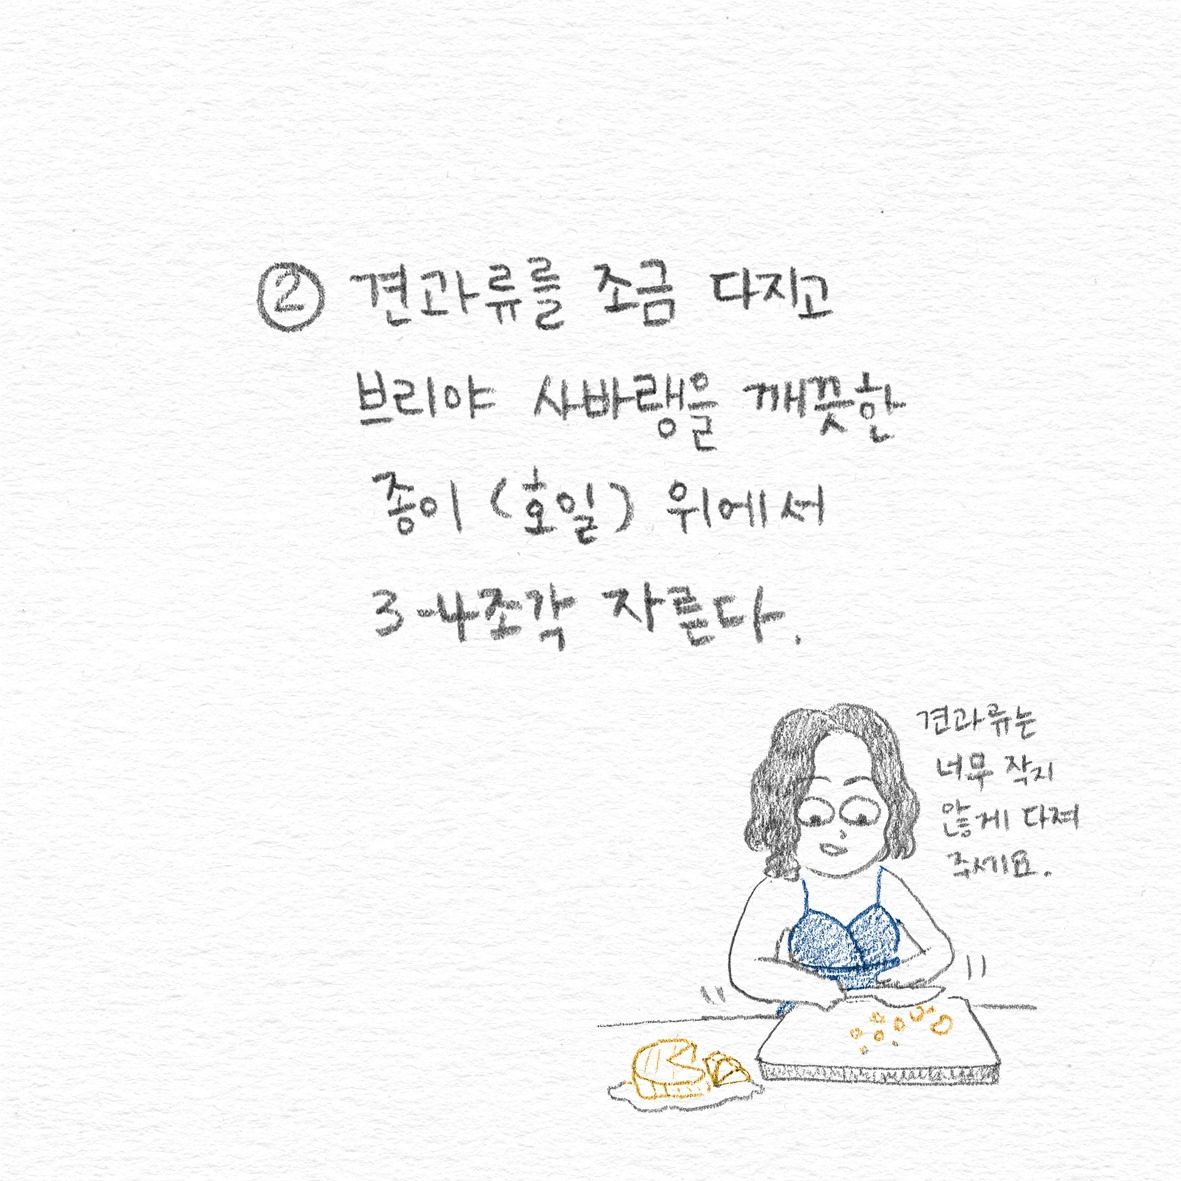 ② 견과류를 조금 다지고
브리야 사바랭을 깨끗한
종이 (호일) 위에서
3-4조각 자른다.
견과류는
너무 작지
않게 다져
주세요.